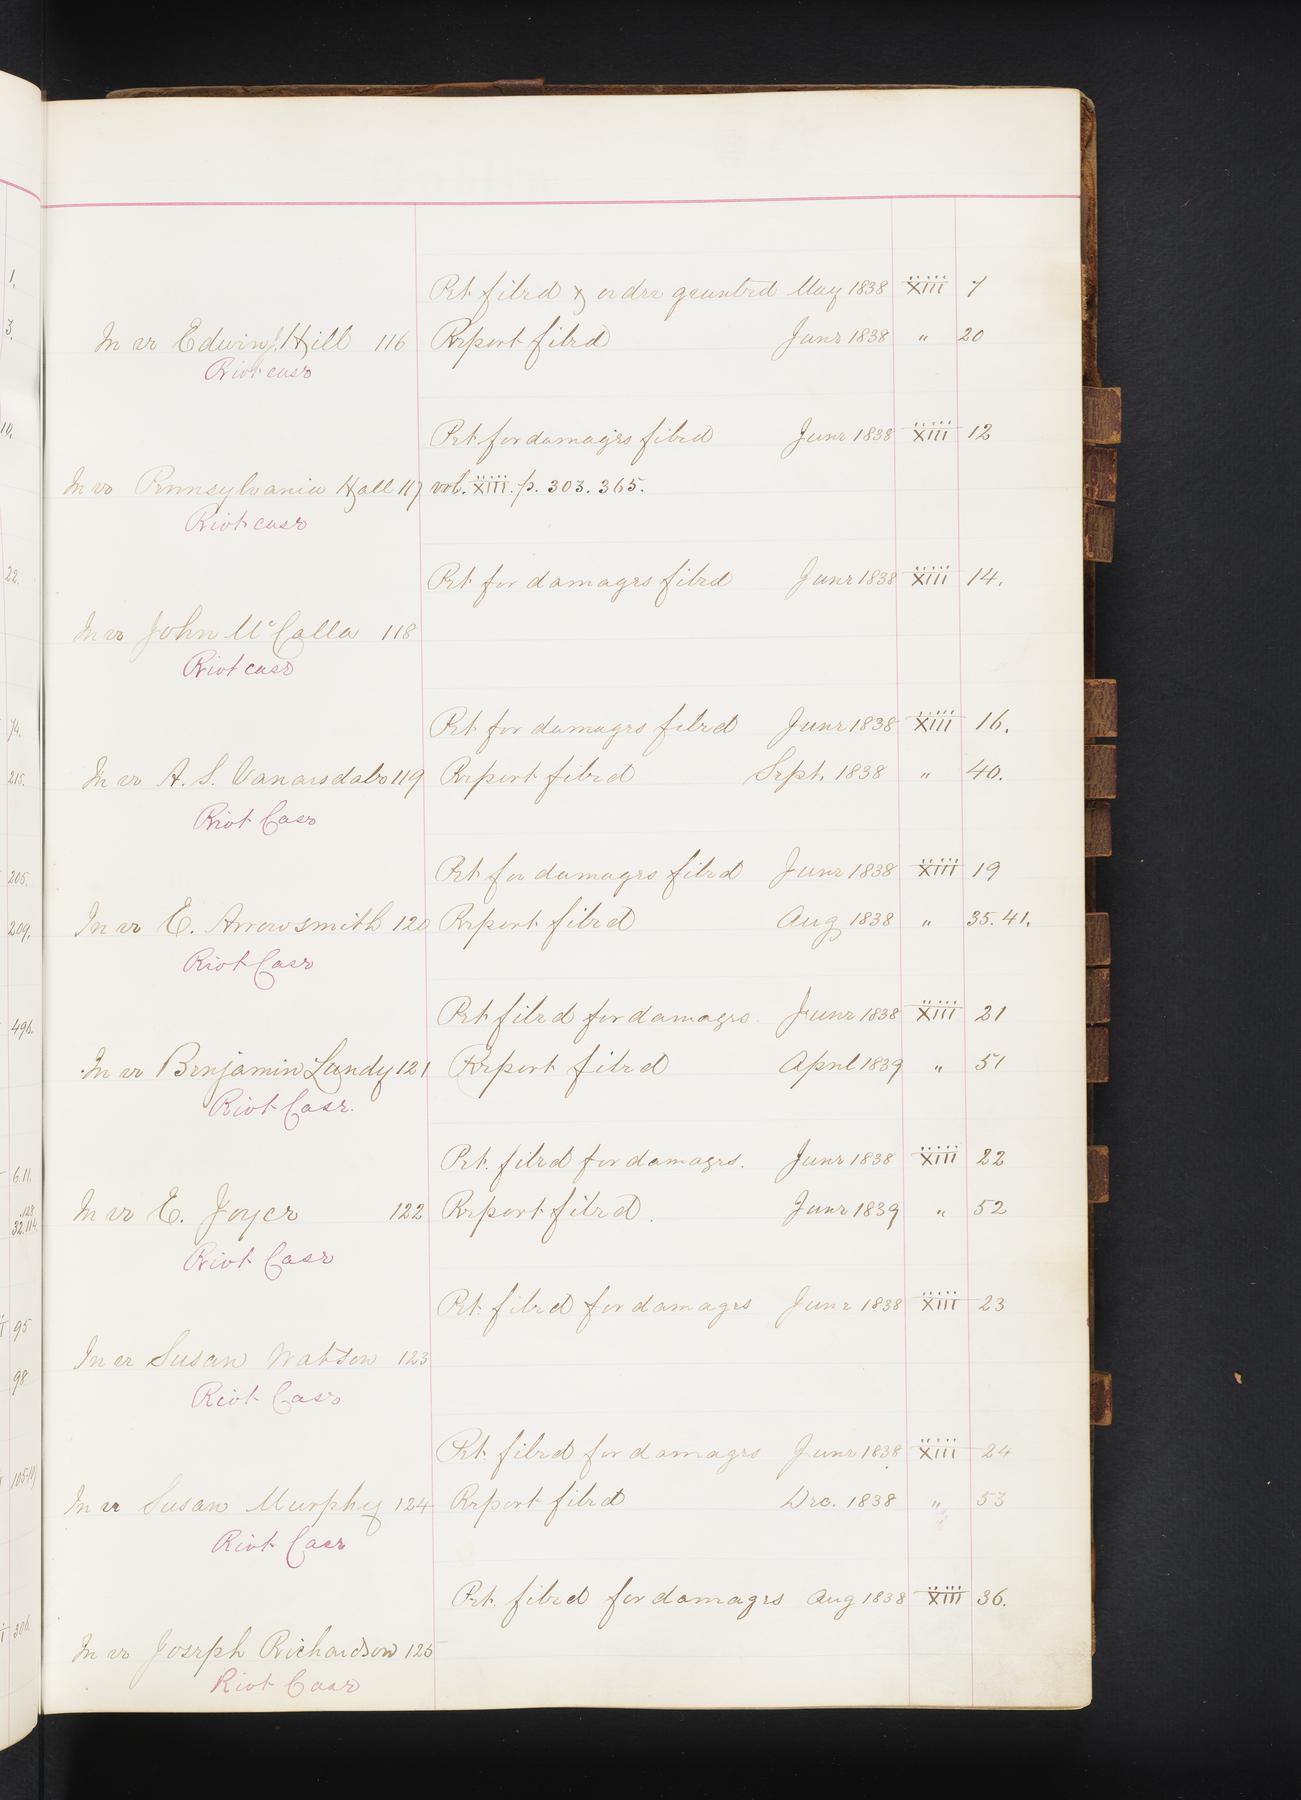 Pet filed & order granted May 1838 XIII 7
In re Edwin J. Hill 116 Report filed June 1838 " 20
Riot case
Pet for damages filed June 1838 XIII 12
In re Pennsylvania Hall 117 vol. XIII. p. 303. 365.
Riot case
Pet for damages filed June 1838 XIII 14.
In re John McCalla 118
Riot case
Pet for damages filed June 1838 XIII 16.
In re A. S. Vanarsdale 119 Report filed Sept. 1838 " 40.
Riot Case
Pet for damages filed June 1838 XIII 19
In re E. Arrowsmith 120 Report filed Aug 1838 " 35. 41.
Riot Case
Pet filed for damages June 1838 XIII 21
In re Benjamin Lundy 121 Report filed April 1839 " 51
Riot Case.
Pet. filed for damages. June 1838 XIII 22
In re E. Joyce 122 Report filed. June 1839 " 52
Riot Case
Pet. filed for damages June 1838 XIII 23
In re Susan Watson 123
Riot Case
Pet. filed for damages June 1838 XIII 24
In re Susan Murphy 124 Report filed Dec. 1838 " 53
Riot Case
Pet. filed for damages Aug 1838 XIII 36.
In re Joseph Richardson 125
Riot Case
1.
3.
10.
22.
74.
215.
205.
209.
496.
6.11.
128
32.114.
95
98